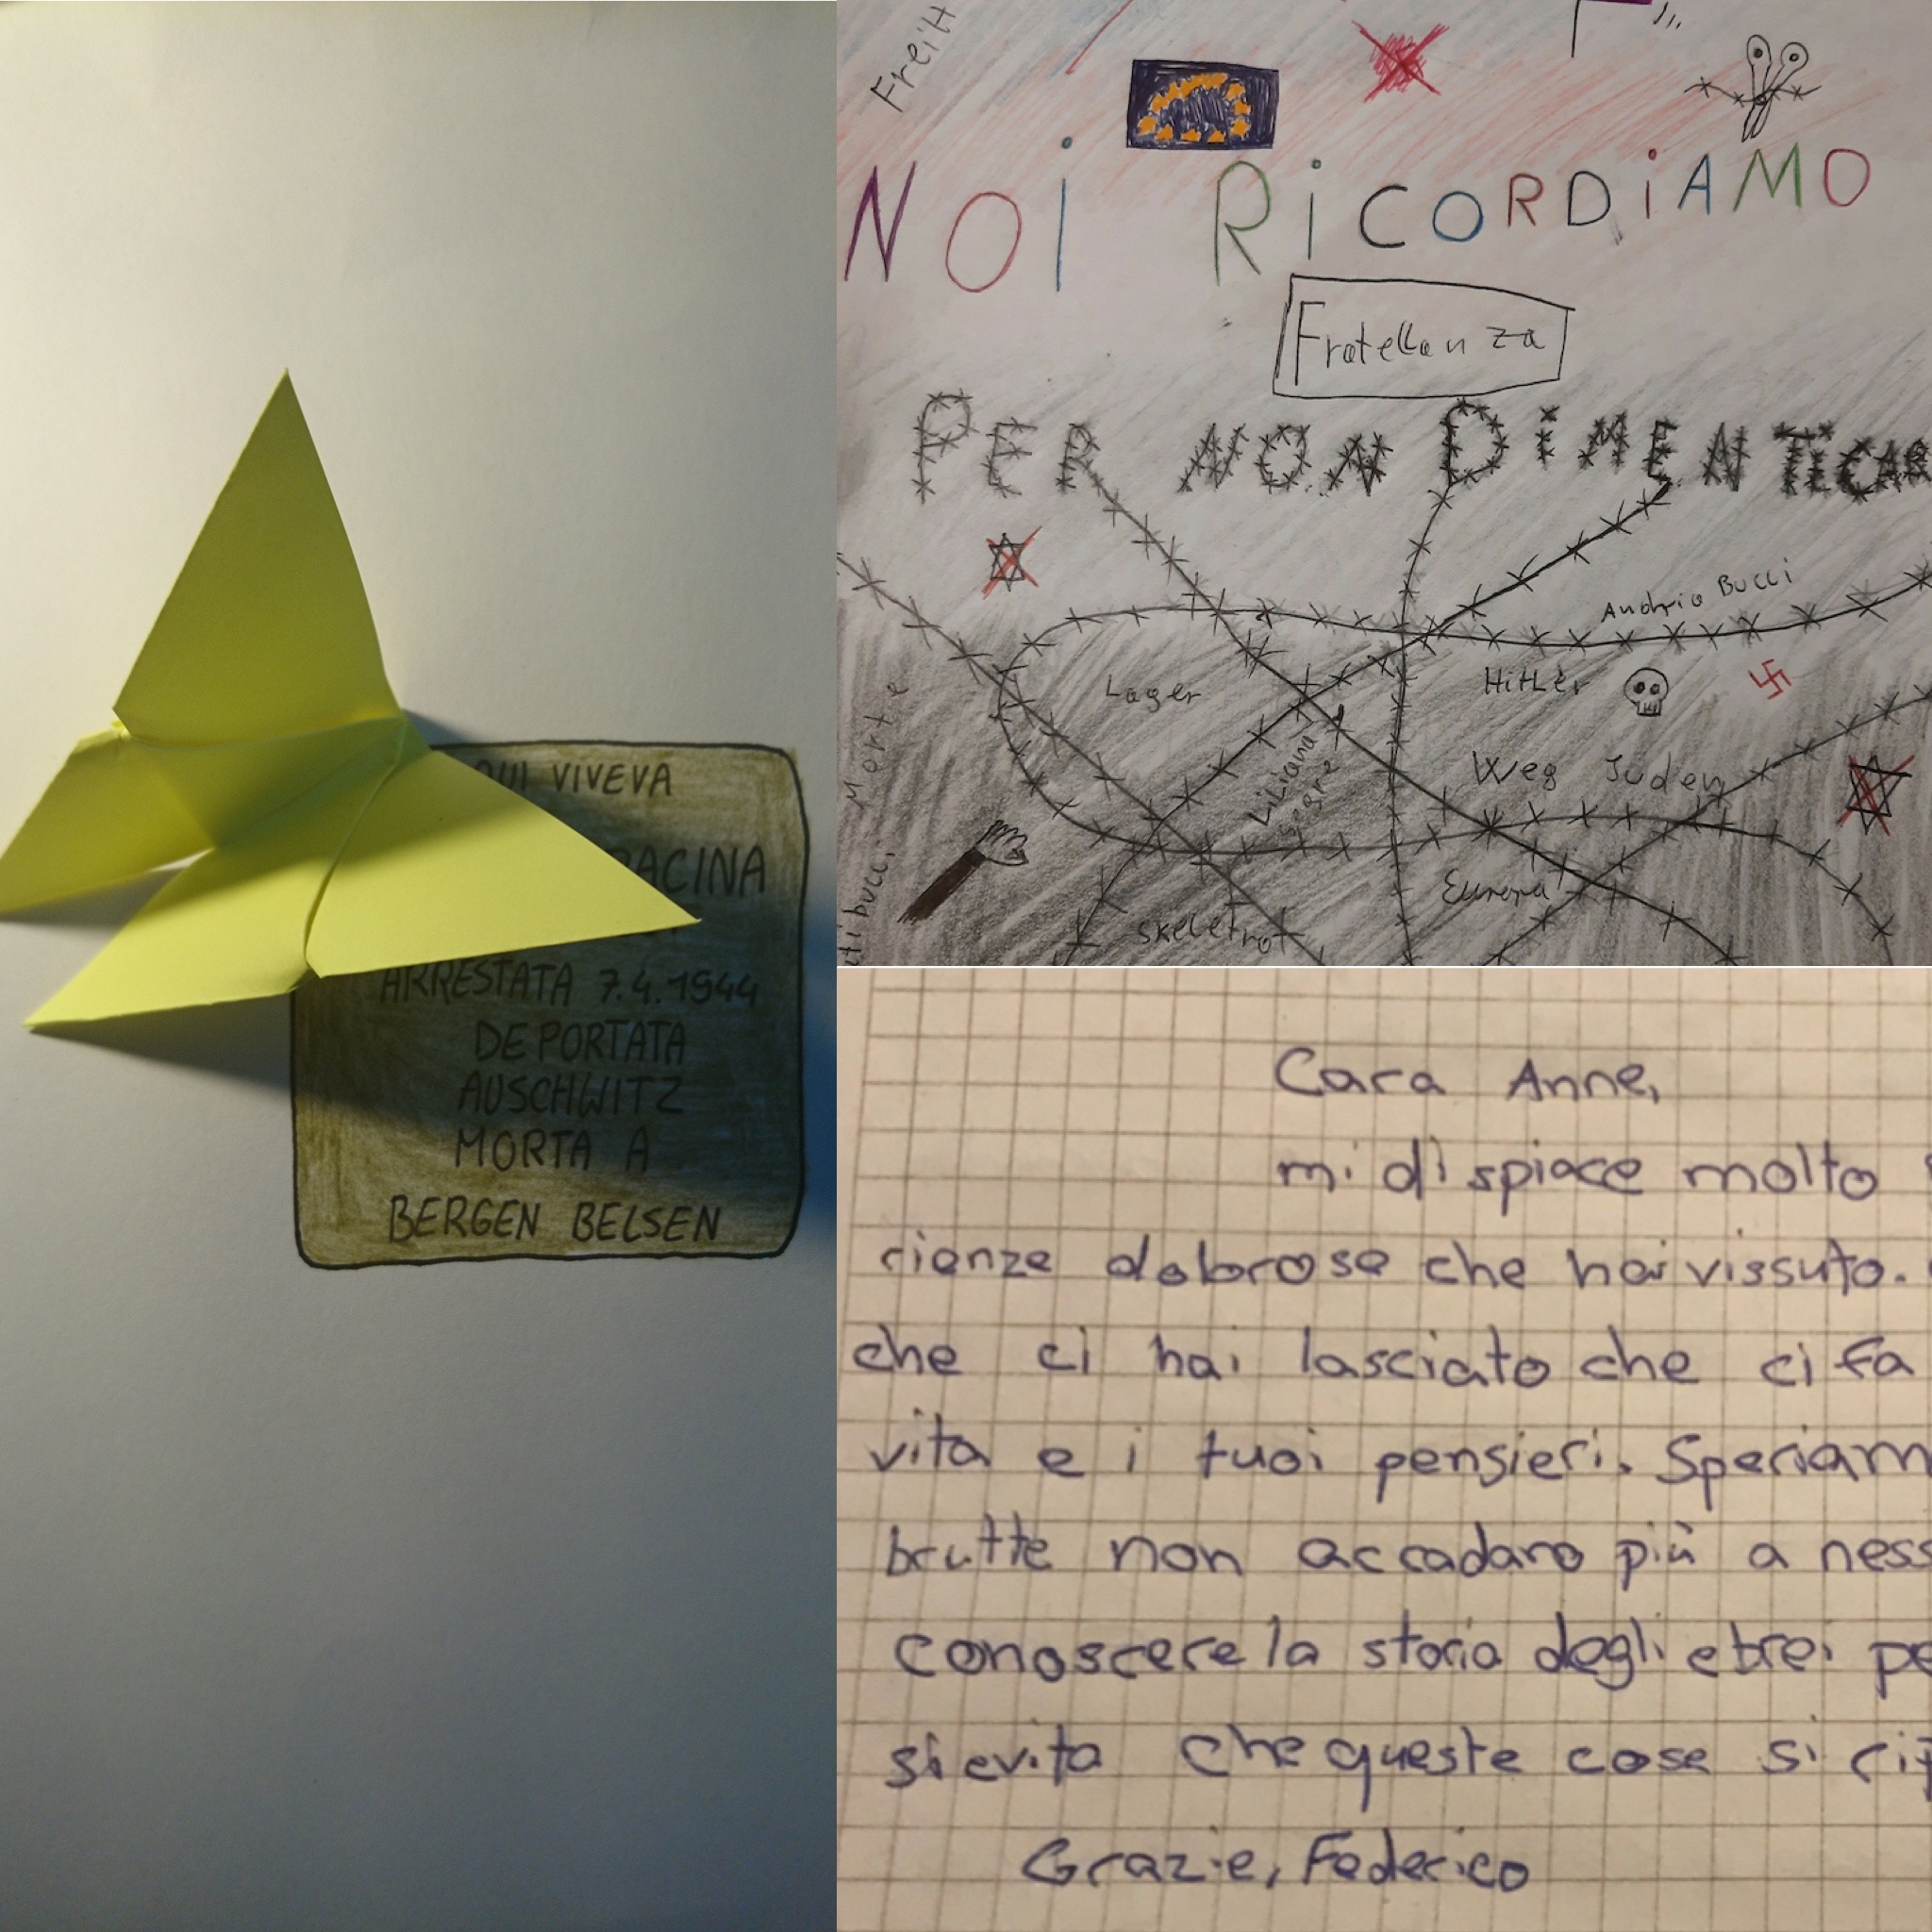 QUI VIVEVA
ARRESTATA 7.4.1944
DEPORTATA
AUSCHWITZ
MORTA A
BERGEN BELSEN
NOI RiCORDiAMO
Fratellanza
PER NON DiMENTiCAR
Andria Bucci
Lager
HitLer
Liliana
Segre
Weg Juden
Morte
Europa
Skeletro
Cara Anne,
mi dispiace molto
rienze dolorose che hai vissuto.
che ci hai lasciato che ci fa
vita e i tuoi pensieri. Speriam
brutte non accadano più a ness
conoscere la storia degli ebrei pe
si evita che queste cose si rip
Grazie, Federico